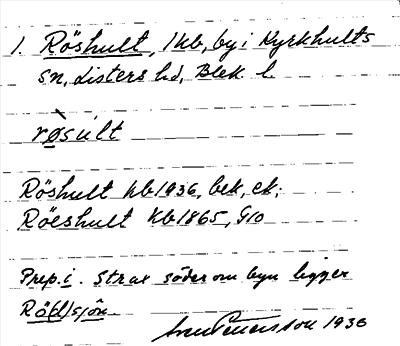 1. Röshult, 1 kb, by i Kyrkhults
sn, Listers hd, Blek. l.
røsult
Röshult Kb 1936, bek, ek;
Röeshult Kb 1865, G10
Prep. i. Strax söder om byn ligger
Rö(l)sjön.
1936